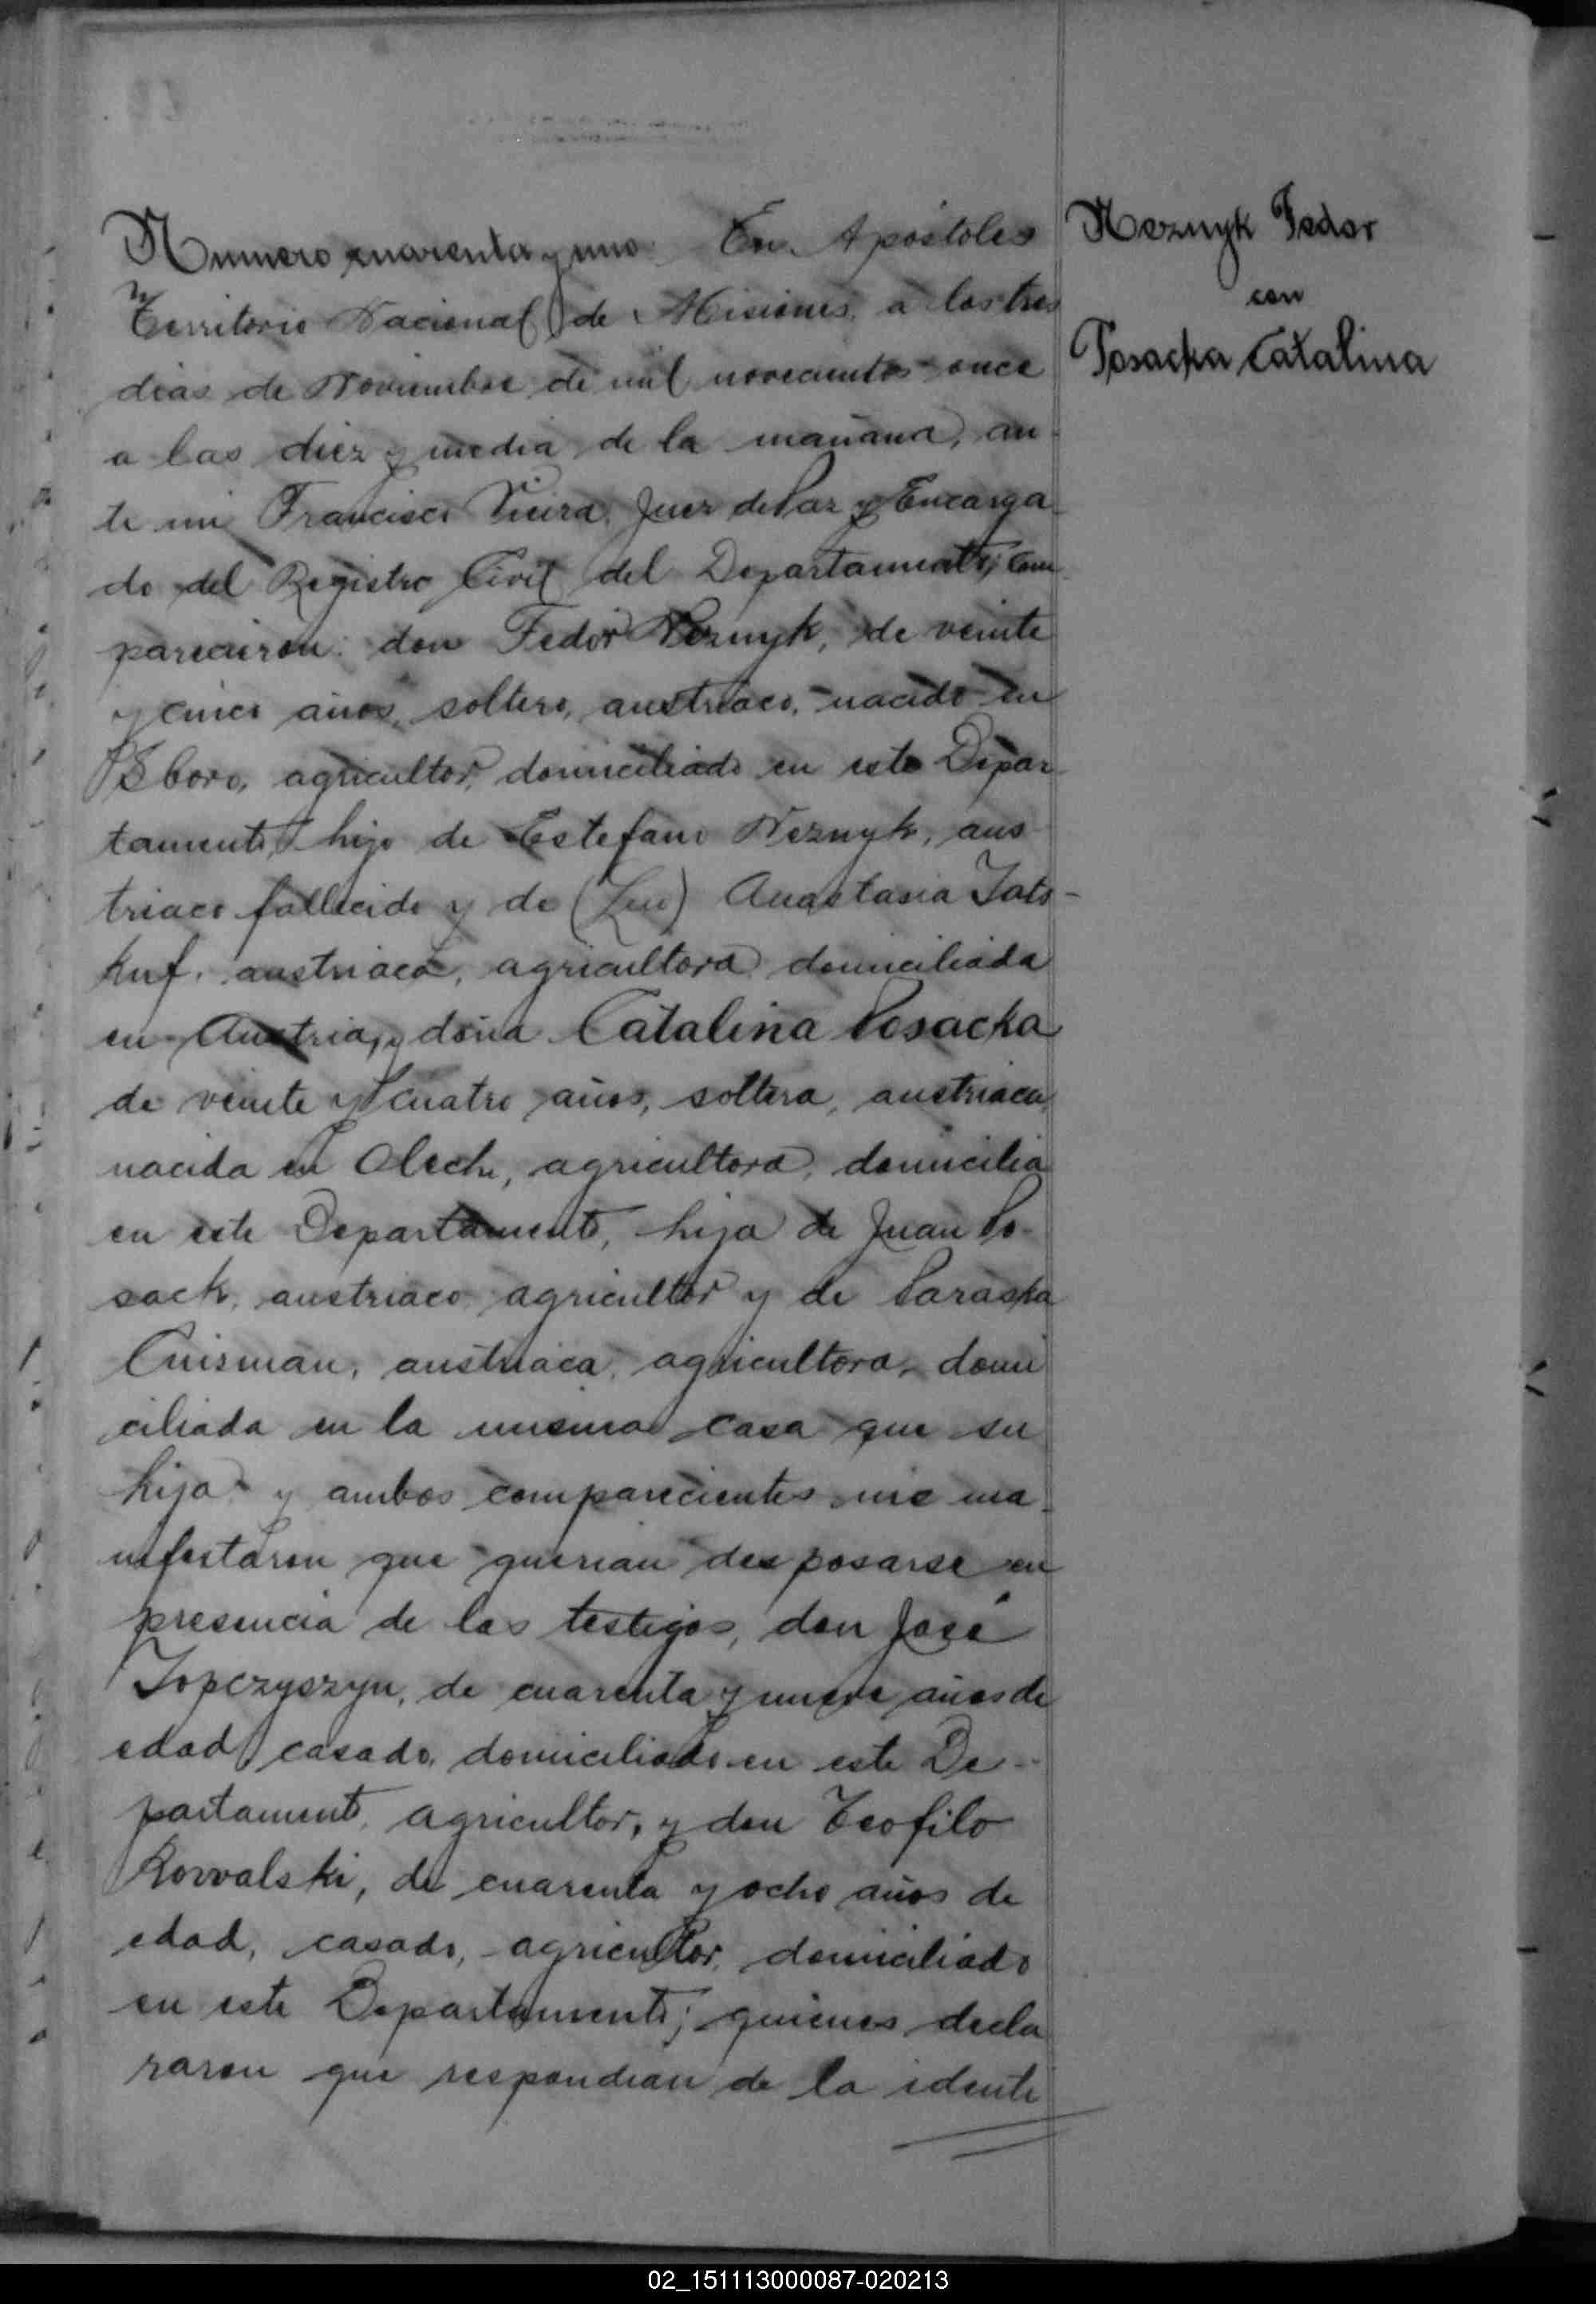 Numero cuarenta y uno. En Apostoles
Territorio Nacional de Misiones, a los tres
dias de Noviembre de mil novecientos once
a las diez y media de la mañana, an-
te mi Francisco Vieira, Juez de Paz y Encarga-
do del Registro Civil del Departamento; com-
parecieron: don Fedor Neznyk, de veinte
y cinco años, soltero, austriaco, nacido en
agricultor, domiciliado en este Depar-
tamento, hijo de Estefano Neznyk, aus-
triaco fallecido y de Anastasia
austriaca, agricultora domiciliada
en Austria, y doña Catalina Posacka
de veinte y cuatro años, soltera, austriaca,
nacida en agricultora, domicilia
en este Departamento, hija de Juan Po-
sack, austriaco agricultor y de Paraska
Cuisman, austriaca, agricultora, domi
ciliada en la misma casa que su
hija y ambos comparecientes me ma-
nifestaron que querian desposarse en
presencia de los testigos, don José
Jopczyszyn, de cuarenta y nueve años de
edad casado, domiciliado en este De-
partamento, agricultor, y don Teofilo
Kowalski, de cuarenta y ocho años de
edad, casado, agricultor, domiciliado
en este Departamento; quienes decla
raron que respondian de la identi
Neznyk Fedor
con
Posacka Catalina
02_151113000087-020213